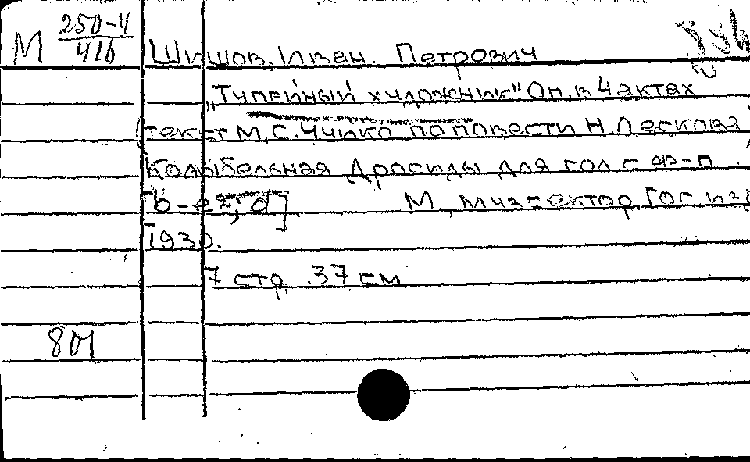 М 250-4/416
Шишов, Иван Петрович
„Тупейный художник" Оп. в 4 актах
(текст М. С. Чуйко по повести Н. Лескова
Колыбельная Дросиды для гол с ф-п.
[b-es, d] М, Музсектор Гос. из
1930.
7 стр. 37 см
801